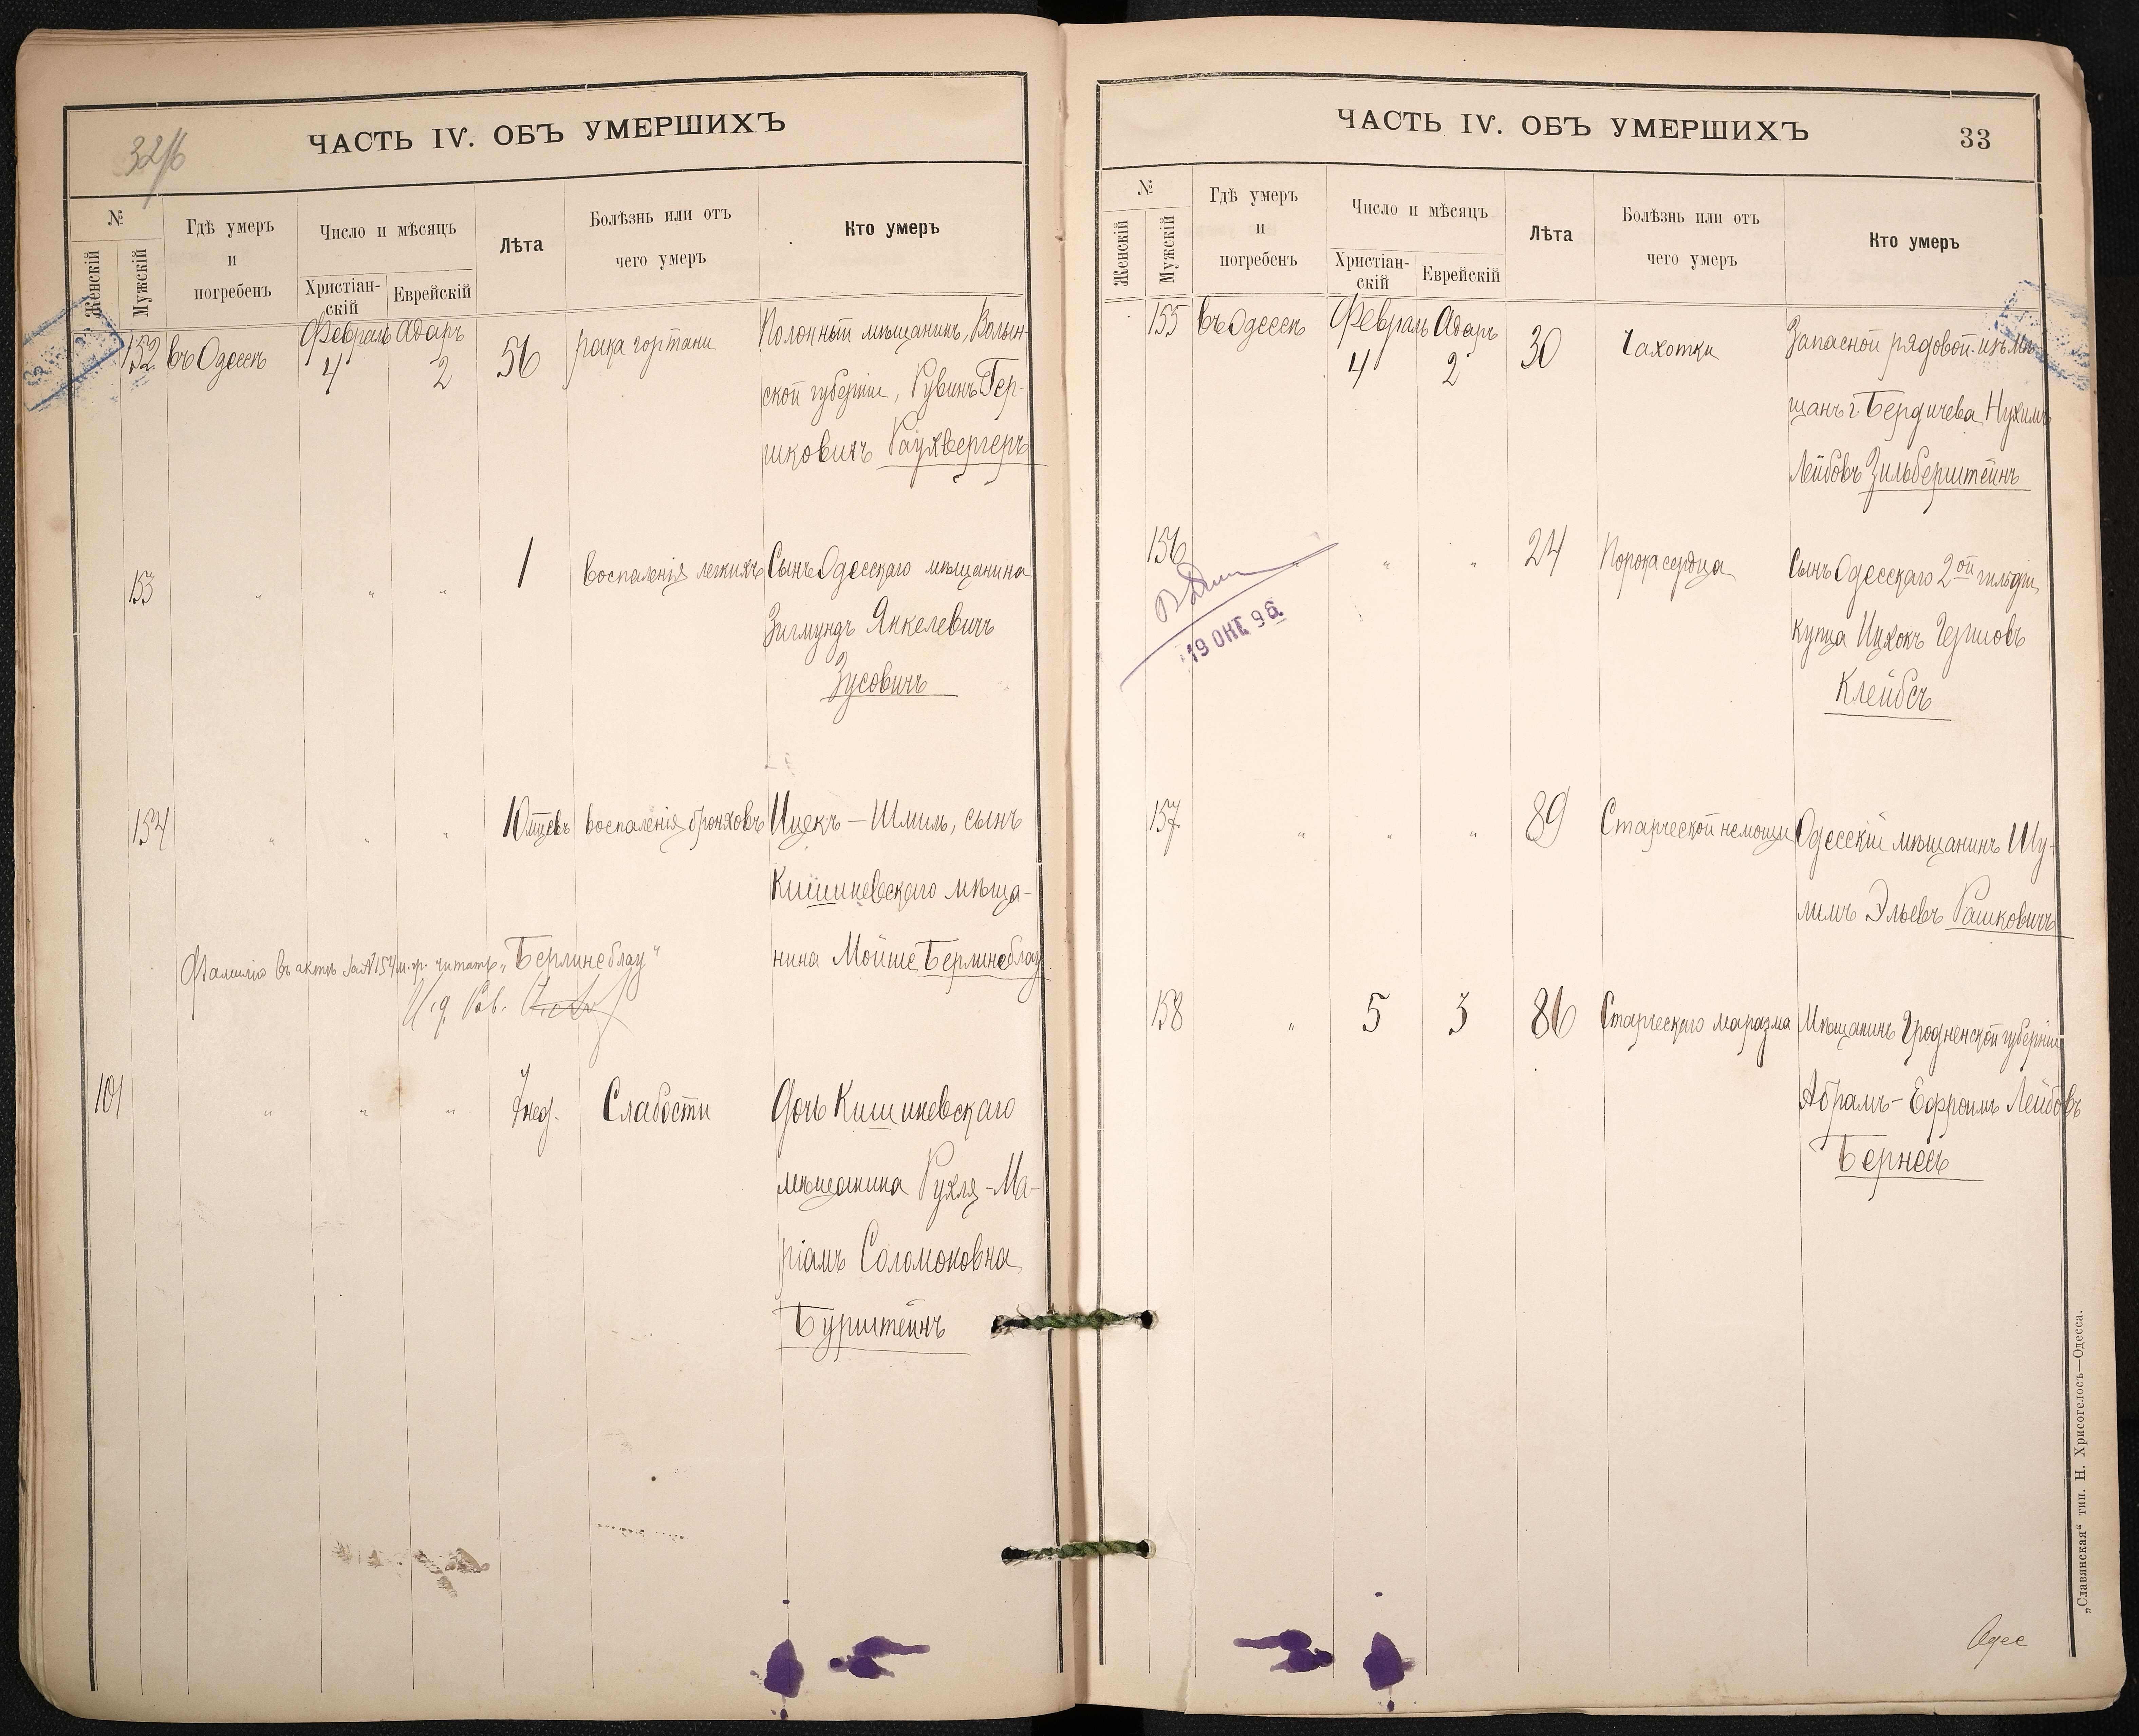 32/б
ЧАСТЬ IV. ОБЪ УМЕРШИХЪ
№
Женскій
Мужскій
Гдѣ умеръ
и
погребенъ
Число и мѣсяцъ
Христіан-
скій
Еврейскій
Лѣта
Болѣзнь или отъ
чего умеръ
Кто умеръ
152 въ Одессѣ Февраль 4 Адаръ 2 56 рака гортани Полонный мѣщанинъ, Волын-
ской губерніи, Рувинъ Гер-
шковичъ Раухвергеръ
153 " " " 1 воспаленія легкихъ Сынъ Одесскаго мѣщанина
Зигмундъ Янкелевичъ
Зусовичъ
154 " " " 10 мцевъ воспаленія бронховъ Ицекъ-Шмиль, сынъ
Кишиневскаго мѣща-
нина Мойше Берлинеблау
Фамилію въ актѣ за №154 м. гр. читать „Берлинеблау"
И. д. Рав.
101 " " " 7 нед. Слабости Дочь Кишиневскаго
мѣщанина Рухля-Ма-
ріамъ Соломоновна
Бурштейнъ
ЧАСТЬ IV. ОБЪ УМЕРШИХЪ
33
№
Женскій
Мужскій
Гдѣ умеръ
и
погребенъ
Число и мѣсяцъ
Христіан-
скій
Еврейскій
Лѣта
Болѣзнь или отъ
чего умеръ
Кто умеръ
155 въ Одессѣ Февраль 4 Адаръ 2 30 Чахотки Запасной рядовой изъ мѣ-
щанъ г. Бердичева Нухимъ
Лейбовъ Зильберштейнъ
156 " " " 24 Порока сердца Сынъ Одесскаго 2ой гильдіи
купца Ицхокъ Гершовъ
Клейбсъ
19 ОКТ. 96.
157 " " " 89 Старческой немощи Одесскій мѣщанинъ Шу-
лимъ Эльевъ Рашковичъ
158 " 5 3 86 Старческаго маразма Мѣщанинъ Гродненской губерніи
Абрамъ-Ефроимъ Лейбовъ
Бернесъ
Одес
„Славянская" тип. Н. Хрисогелосъ—Одесса.